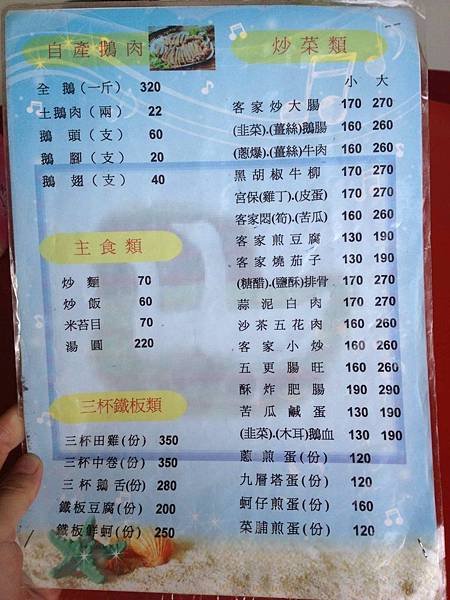 自產鵝肉
全鵝(一斤) 320
土鵝肉(兩) 22
鵝頭(支) 60
鵝腳(支) 20
鵝翅(支) 40
主食類
炒麵 70
炒飯 60
米苔目 70
湯圓 220
三杯鐵板類
三杯田雞(份) 350
三杯中卷(份) 350
三杯鵝舌(份) 280
鐵板豆腐(份) 200
鐵板鮮蚵(份) 250
炒菜類
小 大
客家炒大腸 170 270
(韭菜).(薑絲)鵝腸 160 260
(蔥爆).(薑絲)牛肉 160 260
黑胡椒牛柳 170 270
宮保(雞丁).(皮蛋) 170 270
客家悶(筍).(苦瓜) 160 260
客家煎豆腐 130 190
客家燒茄子 130 190
(糖醋).(鹽酥)排骨 170 270
蒜泥白肉 170 270
沙茶五花肉 160 260
客家小炒 160 260
五更腸旺 160 260
酥炸肥腸 190 290
苦瓜鹹蛋 130 190
(韭菜).(木耳)鵝血 130 190
蔥煎蛋(份) 120
九層塔蛋(份) 120
蚵仔煎蛋(份) 160
菜脯煎蛋(份) 120